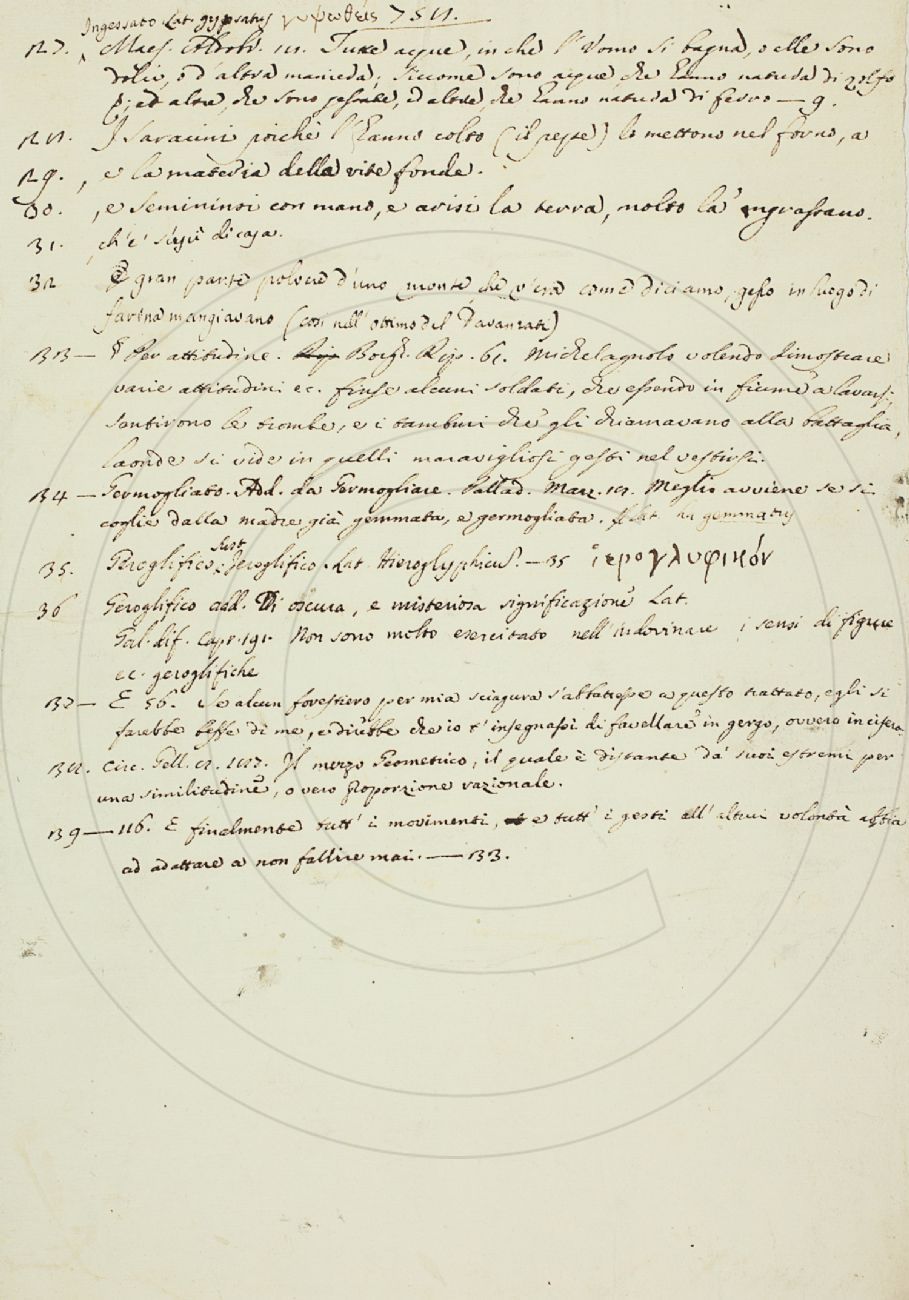 Ingessato Lat. gypsatus γυψωθείς 7511.
127. Maes. Aldobr. Tutte acque, in che l'Uomo si bagna, o elle sono
dolci, o d'altra maniera; siccome sono acque, che hanno natura di zolfo
ed altre, che sono pesante, ed altre, che hanno natura di ferro — 9.
I Saracini poichè l'hanno colto (il pepe) lo mettono nel forno, a
29. , e la materia della vite fonde.
30. , e semininsi con mano, e arisi la terra, molto la 'ngrassano.
31. , ch'è di casa.
32 E gran parte polvere d'uno monte, che v'era come diciamo, gesso in luogo di
farina mangiavano (così nell'ottimo del Davanzati)
133 — § Per attitudine. Borgh. Rip. 61. Michelagnolo volendo dimostrare
varie attitudini ec. finse alcuni soldati, che essendo in fiume a lavarsi,
sentirono le trombe, e i tamburi che gli chiamavano alla battaglia,
laonde si vide in quelli maravigliosi gesti nel vestirsi.
134 — Germogliato. Add. da Germogliare. Pallad. Marz. Meglio avviene se si
coglie dalla madre già gemmata, e germogliata. § Lat. gemmatus
35. Geroglifico, Sust. Jeroglifico. Lat. Hieroglyphicus. — 35 ἱερογλυφικόν
36 Geroglifico add. Di oscura, e misteriosa significazione Lat.
Gal. dif. Capr. 191. Non sono molto esercitato nell'indovinare i sensi di figure
ec. geroglifiche
137 — E 56. Se alcun forestiero per mia sciagura s'abbattesse a questo trattato, egli si
farebbe beffe di me, e direbbe che io t'insegnassi di favellare in gergo, ovvero in cifera
Circ. Gell. Il mezzo Geometrico, il quale è distante da' suoi estremi per
una similitudine, o vero proporzione razionale.
139 — 116. E finalmente tutt' i movimenti, e tutt' i gesti all'altrui volontà abbia
ad adattare a non fallire mai. — 133.